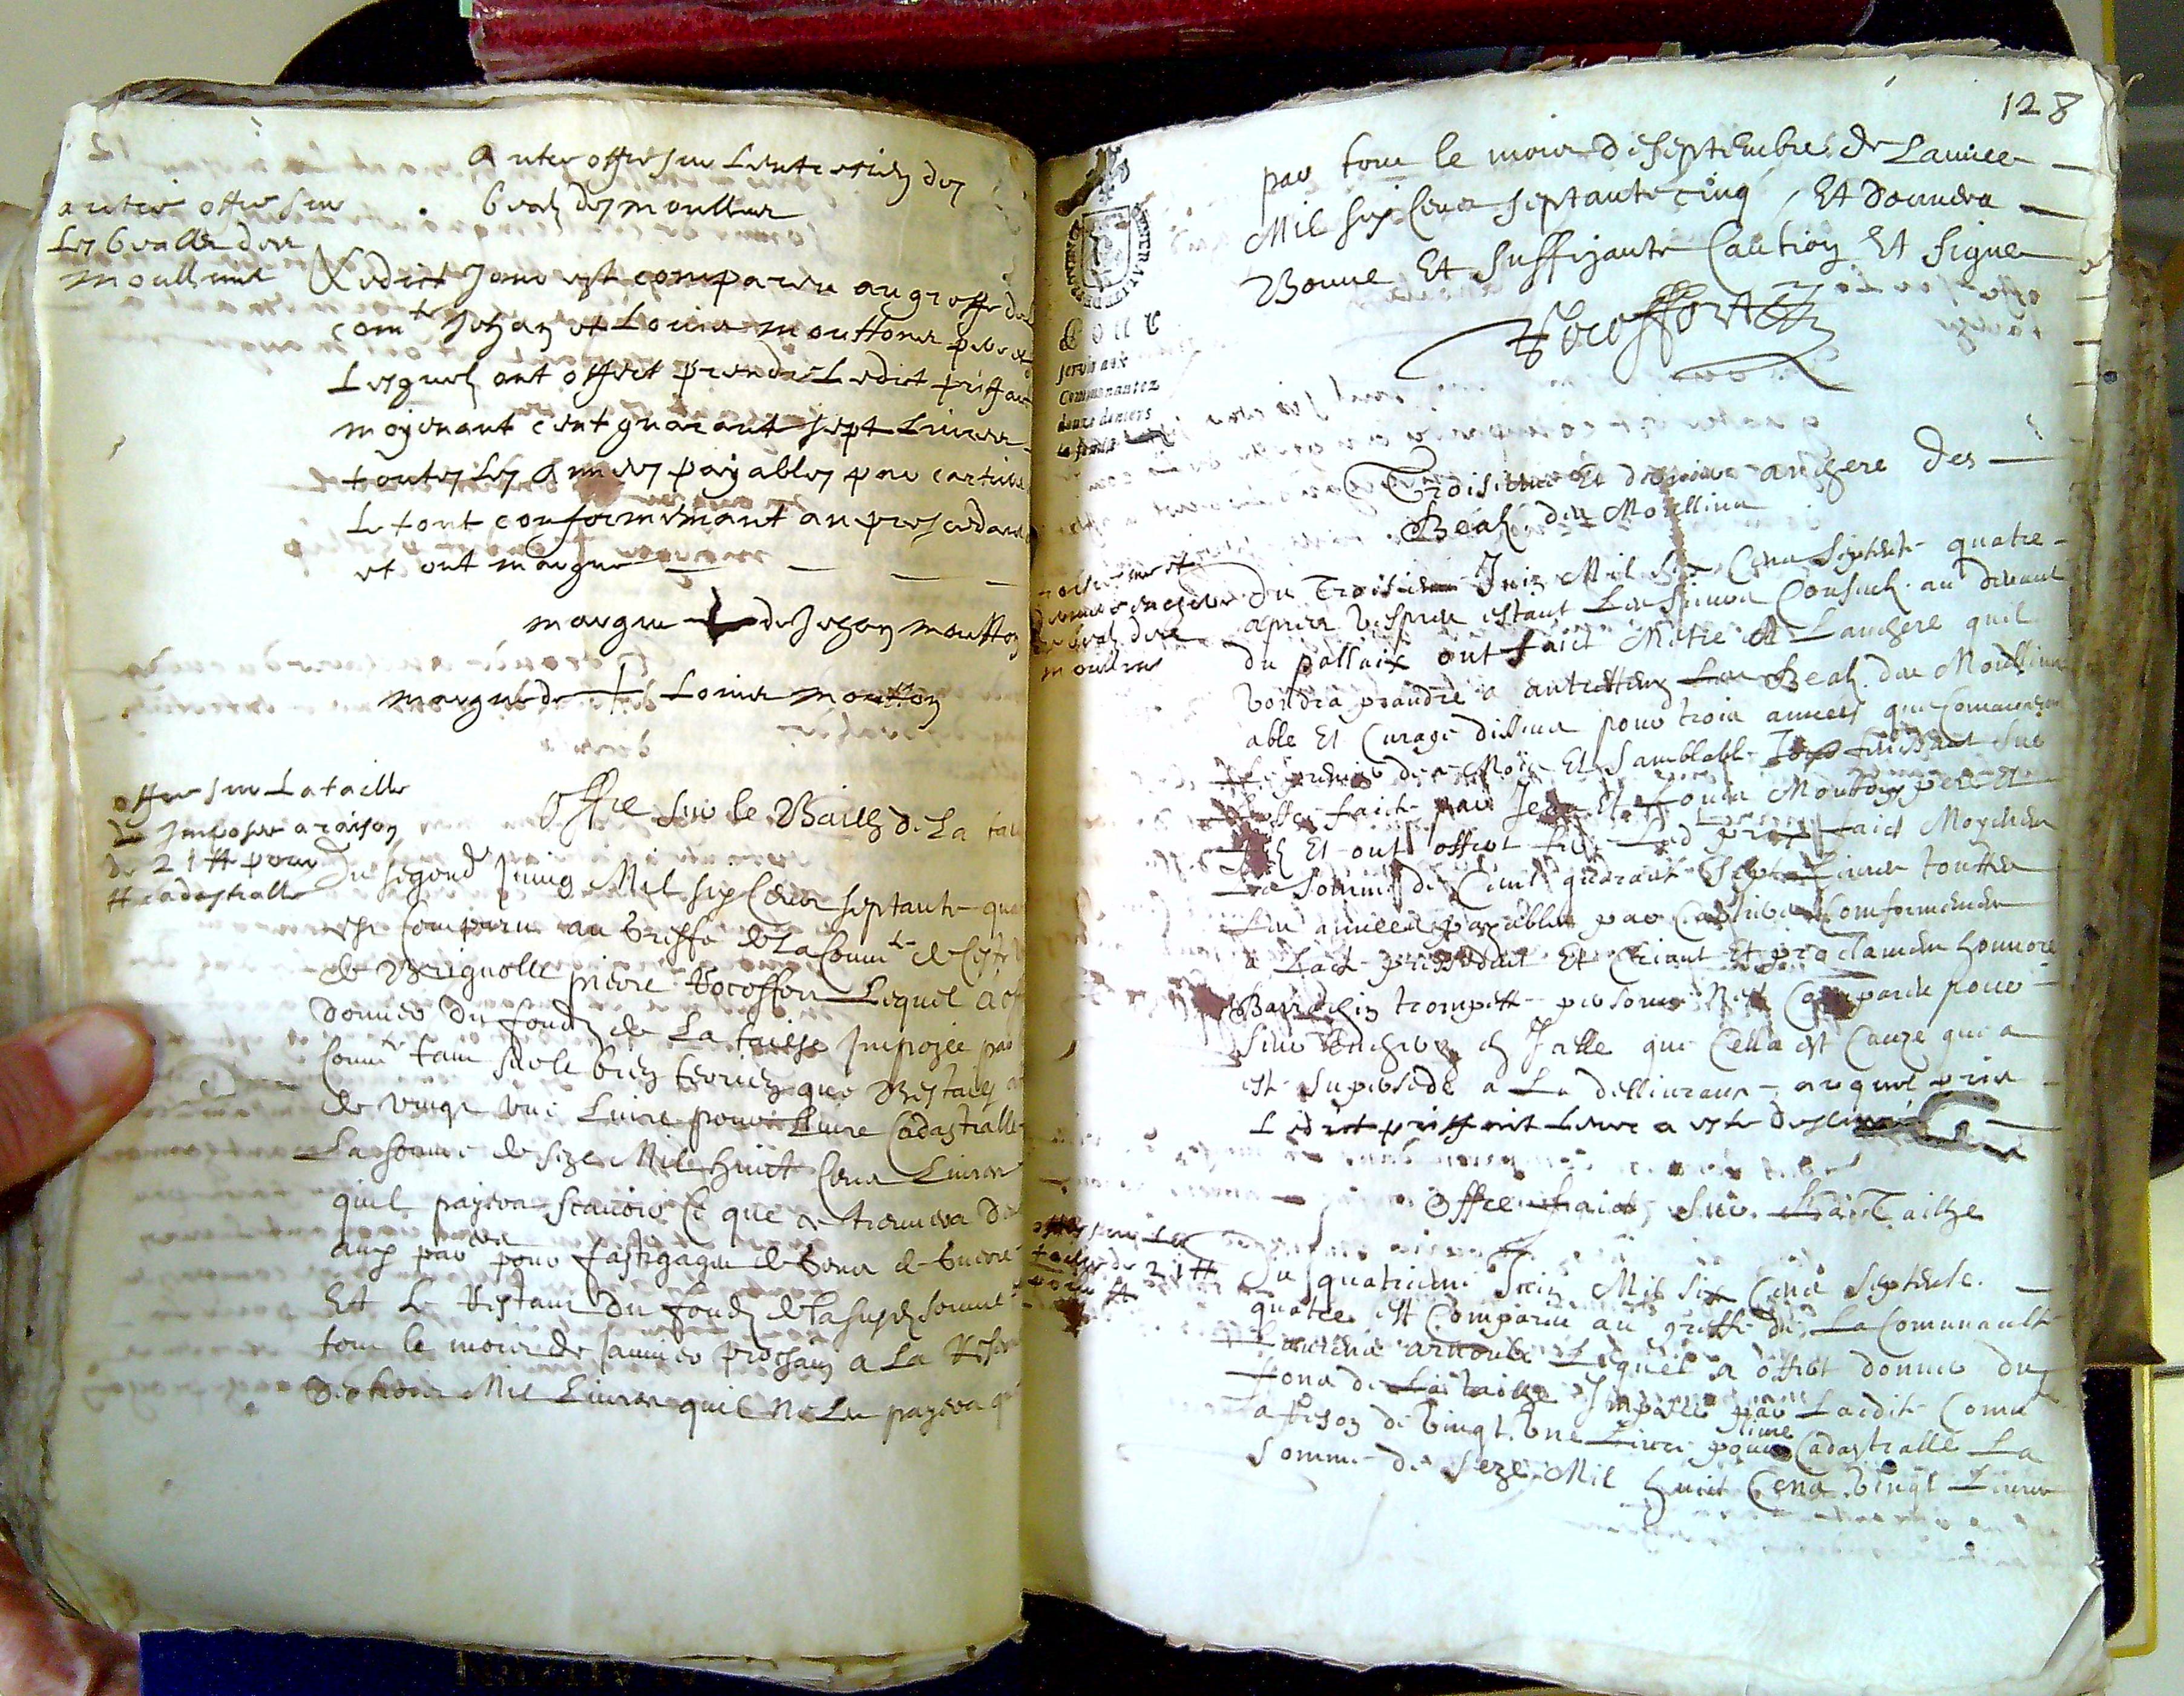 autre offre sur lentretien des
beals des moullins
autre offre sur
les bealz des
moullins
Ledict jour est comparu au greffe de
com.te Jehan et Louis mouttons pere et
Lesquels ont offert prendre Ledict prisfait
moyenant cent quarante sept Livres
toutes les années payables par cartiers
le tout conformemant au proscedant
et ont marque
marque de Jehan moutton
marque de Louis moutton
offre sur La taille
imposee a raison
de 21 # pour
# cadastralle
Offre sur le Bailh de La tai
Du segond Juing Mil six Cens septante qua
est Comparu au Greffe de La Comm.te de Ceste
de Brignolle pierre Rocoffort Lequel a off
donner du fondz de La tailhe Impozée par
Comm.te tant sur le bien terrien que Bestailz
de vingt une Livre pour Livre Cadastralle
La somme de seze Mil huict Cens Livres
quil payera scavoir Ce que se treuvera
par pour de Gens de Guerre
Et Le Restant du fondz de La susd. somme
tout le mois de janvier prochain a La Reserve
Mil Livres quil Ne Les payera q
128
par tout le mois de septembre de Lannee
Mil six Cens septante cinq, Et donnera
Bonne Et suffizante Caution Et signe
Rocoffort
POUR
servir aux
Communautez
douze deniers
la feuille
Troisieme Et derniere anchere des
Bealz des Moullins
derniere enchere
des bealz des
moulins
Du Troisieme Juin Mil Six Cens Septente quatre
apres Vespres estant Les sieurs Consuls au devant
du pallaix ont faict Metre A Lanchere quil
Voudra prandre a entretien Les Bealz des Moullins
able Et Curage diceux pour trois annees que Commencera
le premier de Moys Et Samblable Jour finissant sur
Loffre faicte par Jean Et Louis Moutons pere Et
filz Et ont offert Led prix faict Moyenen
La Somme de Cent quarante Sept Livres touttes
Les annees payables par Cartiers Conformement
a Lact pressedent Et Criant Et proclamen honnore
Barrdelin trompette personne Nest Comparu pour
faire Encheres de Jalle que Cella est Cauze que a
est supersede a La dellivrance auquel prix
Ledict prisffait Leur a este deslivré
Offre faicte sur La Tailhe
offre sur La
taille de 21 #
pour #
Du quatrieme Juin Mil Six Cens Septente
quatre est Comparu au greffe de La Communaulte
Laurens arnoulx Lequel a offert donner du
fond de La tailhe Imposee par Ladite Comu
a Reson de Vingt Une Livre pour livre Cadastralle La
Somme de Seze Mil huict Cens Vingt Livres